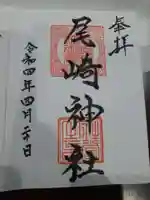 奉拝
尾崎神社
令和四年四月二十日